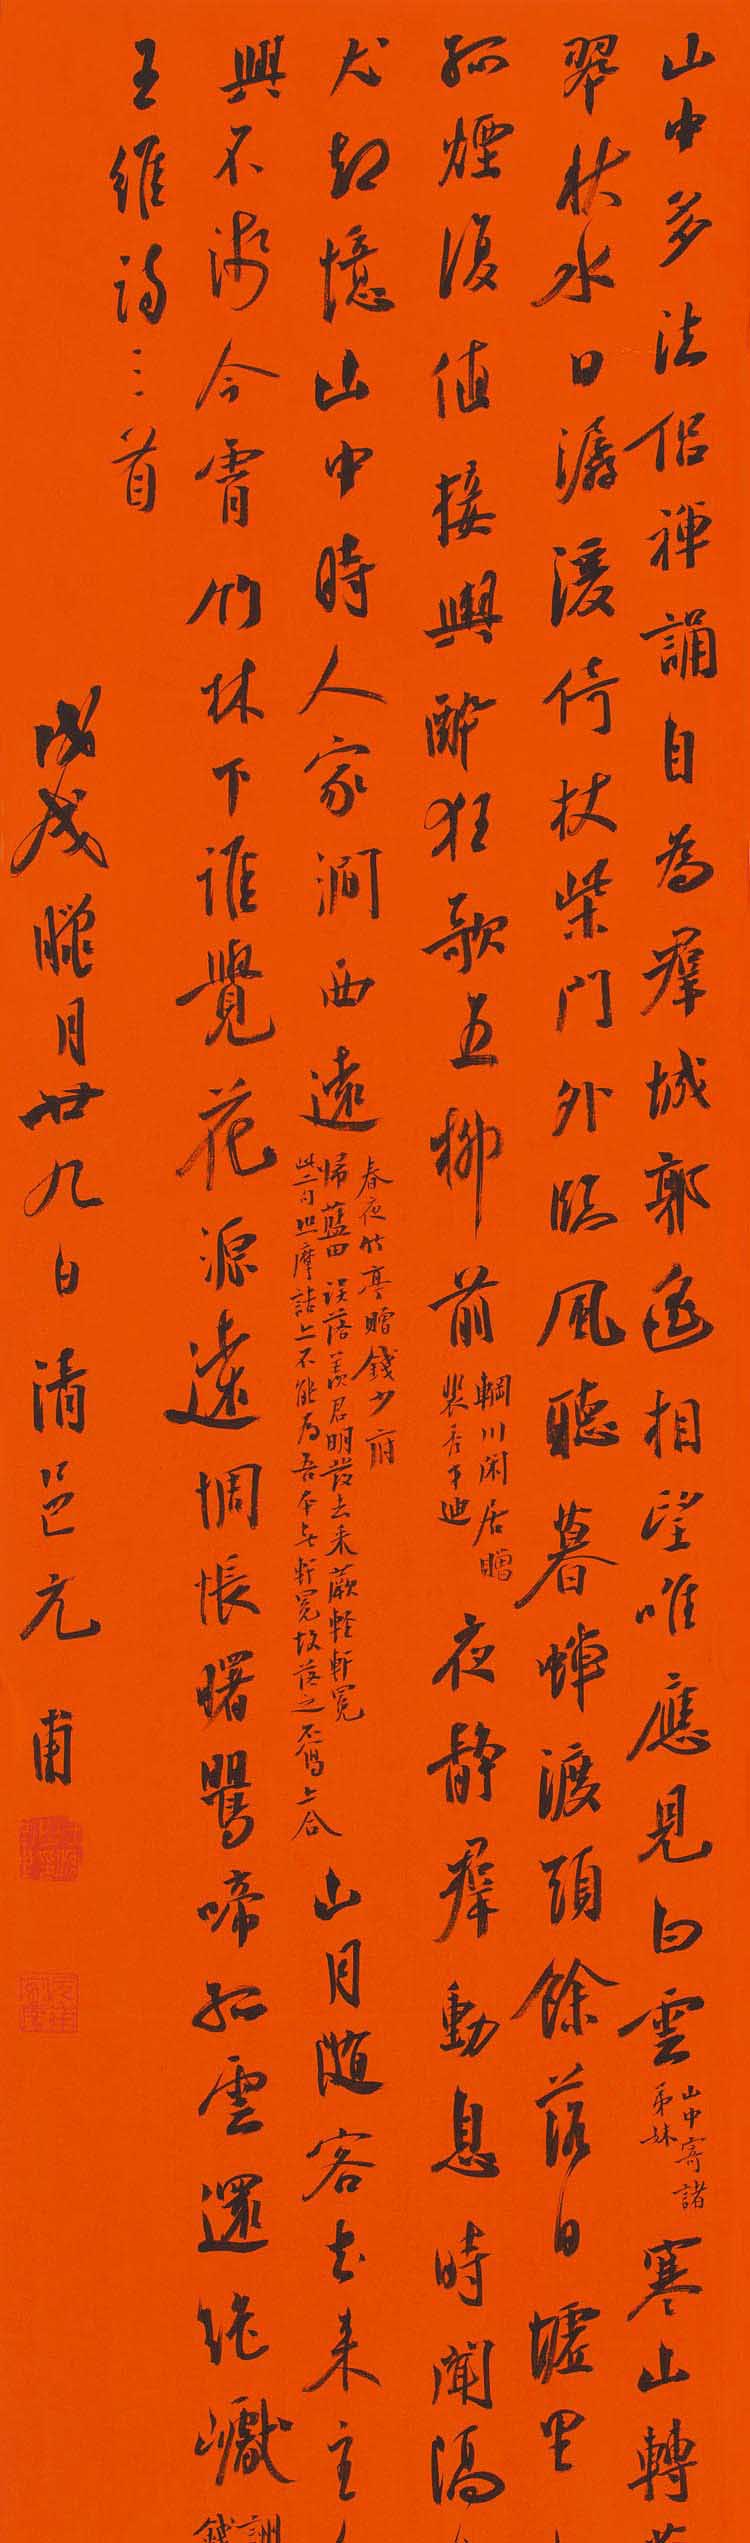 山中多法侣禪誦自為羣城郭遙相望唯應見白雲
山中寄諸
弟妹
寒山轉
翠秋水日潺湲倚杖柴門外臨風聽暮蟬渡頭餘落日墟里
孤煙復值接輿醉狂歌五柳前
輞川闲居贈
裴秀才迪
夜静羣動息時聞隔
犬却憶山中時人家澗西遠
春夜竹亭贈錢少府
歸藍田 误落羨君明發去采蕨輕軒冕
此二句 摩詰 不能为吾本無軒冕故落之不寫 合
山月随客去来主
興不淺今宵竹林下誰覺花源遠惆悵曙鶯啼孤雲還絶巘
王維詩三首
戊戌臘月廿九日清邑元甫